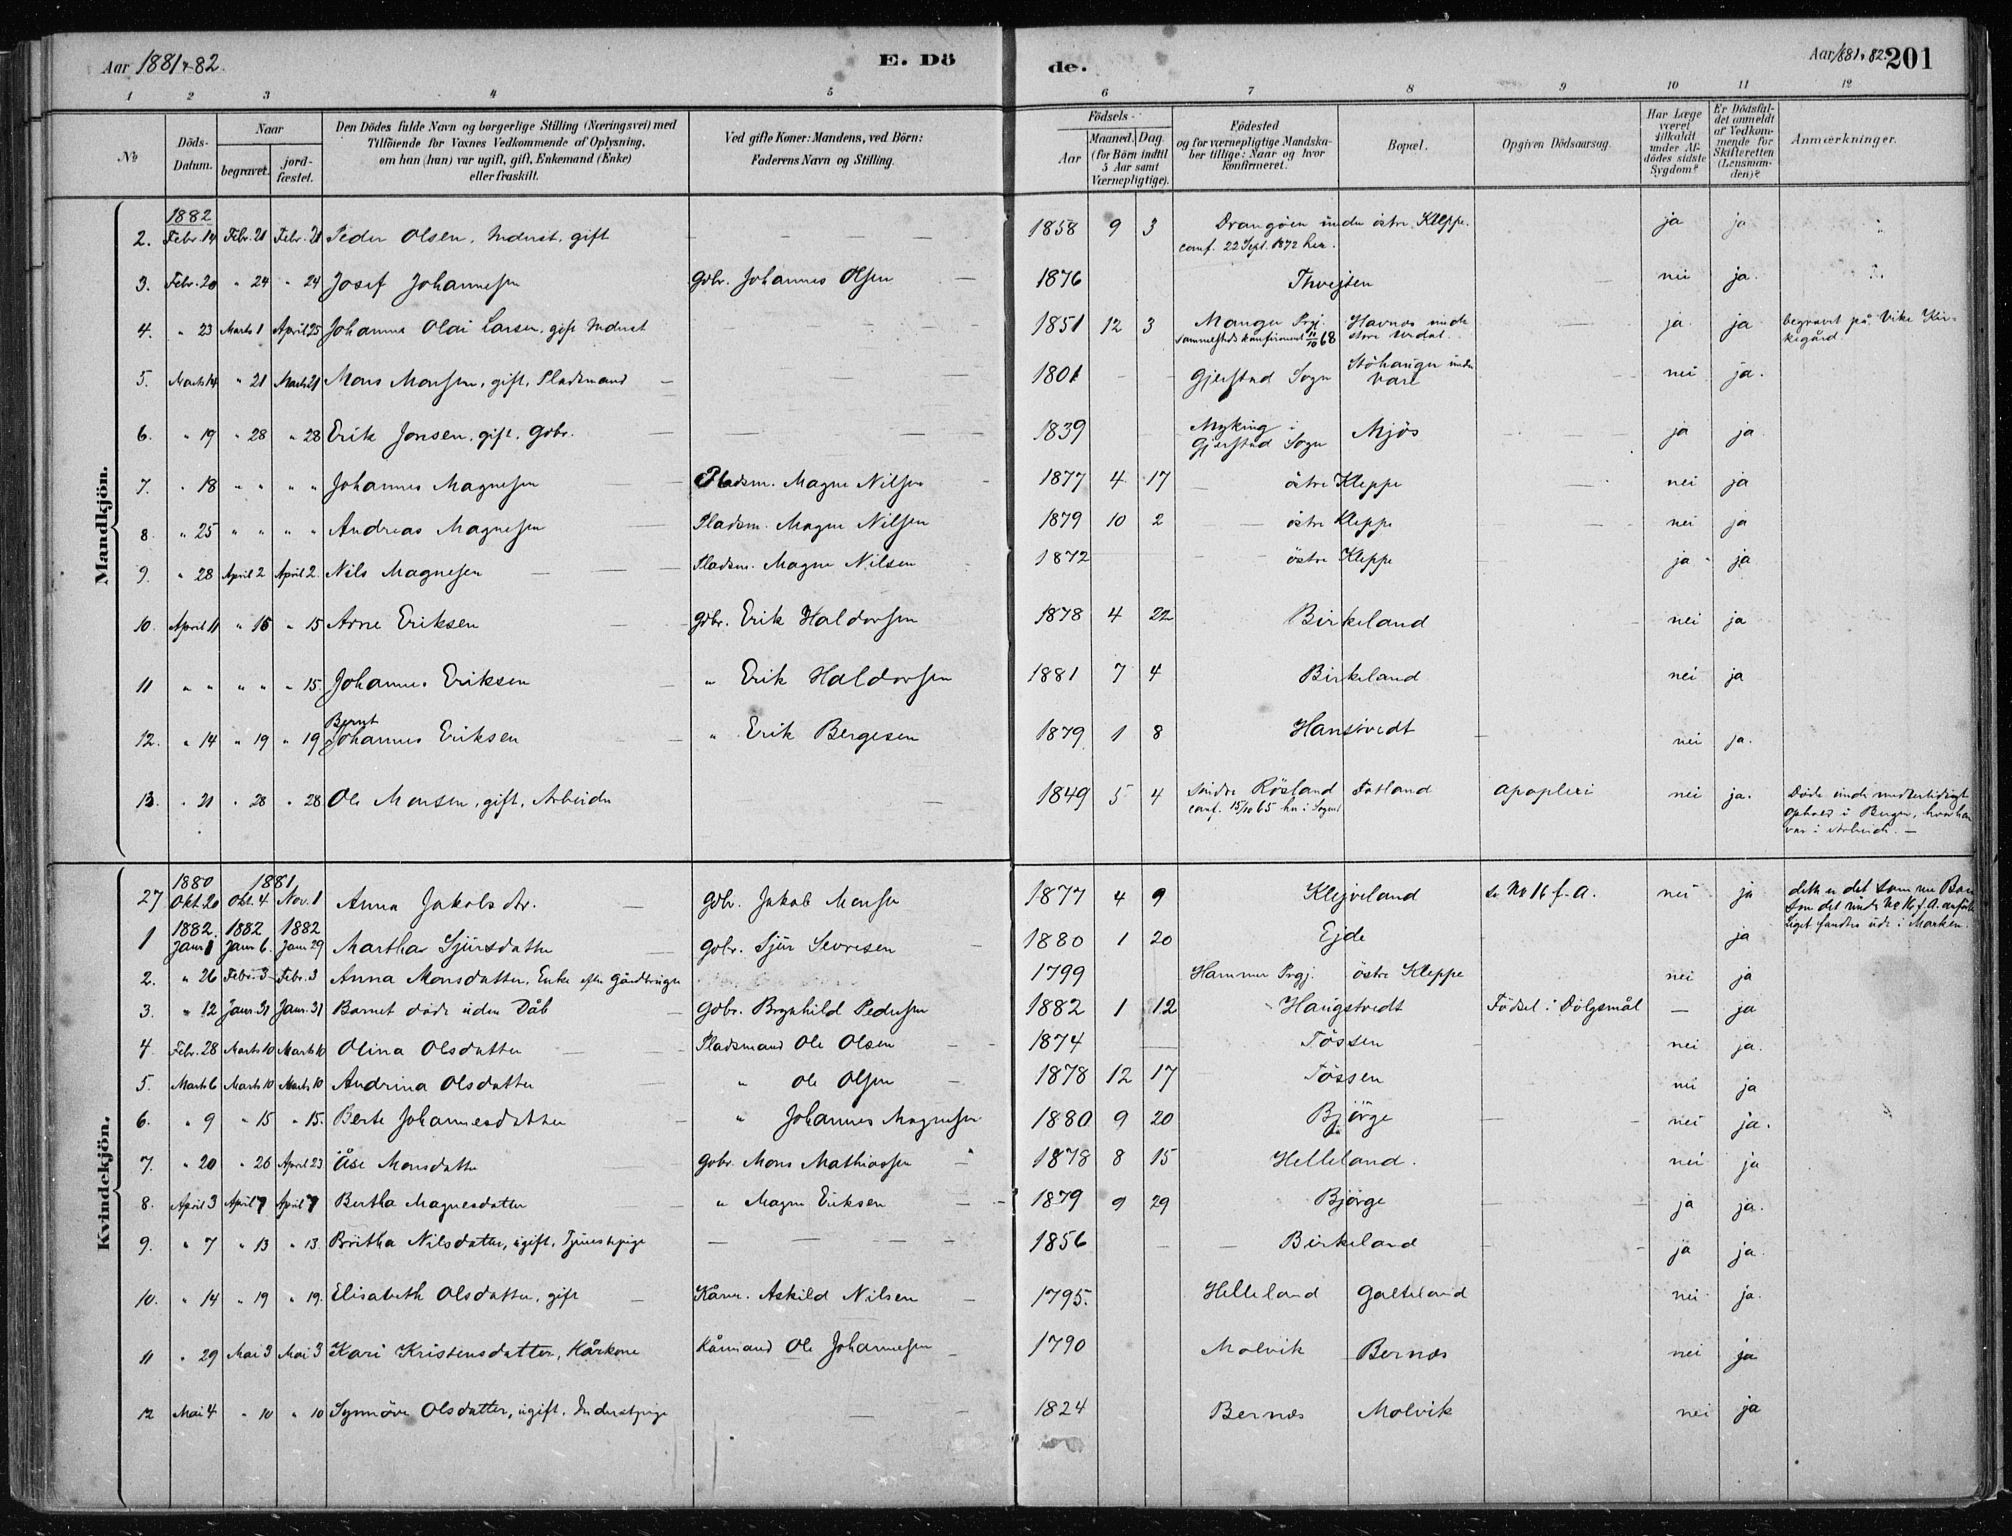 Aar 1881 & 82. E. Dö de. Aar 1881 & 82. 201
1 2 3 4 5 6 7 8 9 10 11 12
No
Döds-Datum.
Naar begravet. jordfæstet.
Den Dödes fulde Navn og borgerlige Stilling (Næringsvei) med
Tilföiende for Voxnes Vedkommende af Oplysning,
om han (hun) var ugift, gift, Enkemand (Enke)
eller fraskilt.
Ved gifte Koner: Mandens, ved Börn:
Faderens Navn og Stilling.
Födsels-
Aar Maaned. Dag. (for Börn indtil 5 Aar samt Værnepligtige).
Födested
og for værnepligtige Mandskaber tillige: Naar og hvor konfirmeret.
Bopæl.
Opgiven Dödsaarsag.
Har Læge været tilkaldt under Afdödes sidste Sygdom?
Er Dödsfaldet anmeldt af Vedkommende for Skifteretten (Lensmanden)?
Anmærkninger.
Mandkjön.
1882
2. Febr. 14 Febr. 21 Febr. 21 Peder Olsen, Inderst, gift — 1858 9 3 Drangöen under östre Kleppe. ja ja
conf. 22 Sept. 1872 her.
3. Febr. 20 " 24 " 24 Josef Johannesen Gdbr. Johannes Olsen — 1876 Thvejten nei ja.
4. " 23 Marts 1 April 25 Johannes Olai Larsen, gift Inderst 1851 12 3 Manger Prgj. Havnes under ja ja begravet på Vike Kir-
sammesteds konfirmeret 11/10 68 store Urdal. kegård.
5. Marts 14 " 21 Marts 21 Mons Monsen, gift, Pladsmand — 1801 — — Gjerstad Sogn Stöhaugen under Vare nei ja.
6. " 19 " 28 " 28 Erik Jonsen, gift, Gdbr. — 1839 Myking i Gjerstad Sogn Mjös ja ja
7. " 18 " " " " Johannes Magnesen Pladsm. Magne Nilsen 1877 4 17 östre Kleppe nei ja
8. " 25 " " " " Andreas Magnesen Pladsm. Magne Nilsen 1879 10 2 östre Kleppe nei ja
9. " 28 April 2 April 2. Nils Magnesen Pladsm. Magne Nilsen 1872 östre Kleppe ja ja
10. April 11 " 15 " 15 Arne Eriksen Gdbr. Erik Haldorsen 1878 4 22 Birkeland nei ja
11 " " " " " 15. Johannes Eriksen " Erik Haldorsen 1881 7 4 Birkeland nei ja
12. " 14 " 19 " 19 Bernt Johannes Eriksen " Erik Bergesen 1879 1 8 Hanstvedt nei ja.
13. " 21 " 28 " 28 Ole Monsen, gift, Arbeider — 1849 5 4 Indre Rösland Fotland apoplexi nei ja. Döde under midlertidigt
conf. 15/10 65 her i Sognet ophold i Bergen, hvor han
var i Arbeide. —
Kvindekjön.
1880 1881
27 Okt. 20 Okt. 4 Nov. 1 Anna Jakobsdtr. — Gdbr. Jakob Monsen 1877 4 9 Klejveland se No 16 f. A. nei ja dette er det samme Barn
som det under No 16 f. A. anförte
Liget fandtes ude i Marken.
1882. 1882 1882
1 Janr 1 Janr 6. Janr 29 Martha Sjursdatter Gdbr. Sjur Sevresen 1880 1 20 Ejde ja
2. " 26 Febr. 3 Febr. 3 Anna Monsdatter, Enke efter Gårdbruger 1799 Hammer Prgj. östre Kleppe nei ja
3. " 12 Janr. 31 Janr. 31 Barnet döde uden Dåb Gdbr. Brynhild Pedersen 1882 1 12 Haugstvedt Födsel i Dölgsmål — ja
4 Febr. 28 Marts 10 Marts 10 Olina Olsdatter Pladsmand Ole Olsen 1874 Tössen nei ja.
5. Marts 6 Marts 10 Marts 10 Andrina Olsdatter " Ole Olsen 1878 12 17 Tössen nei ja
6. " 9 " 15 " 15. Berte Johannesdatter " Johannes Magnesen 1880 9 20 Björge nei ja.
7. " 20 " 26 April 23 Åse Monsdatter Gdbr. Mons Mathiassen 1878 8 15 Helleland. nei ja
8. April 3 April 7 April 7 Bertha Magnesdatter " Magne Eriksen 1879 9 29 Björge ja ja.
9. " 7 " 13 " 13 Britha Nilsdatter, ugift, Tjenestepige — 1856 Birkeland ja ja.
10. " 14 " 19 " 19. Elisabeth Olsdatter, gift — Kårm. Askild Nilsen 1795. Helleland Galteland nei ja.
11 " 29 Mai 3 Mai 3 Kari Kristensdatter, Kårkone Kårmand Ole Johannesen 1790 Molvik Bernæs nei ja
12 Mai 4 " 10 " 10 Synnöve Olsdatter, ugift, Inderstpige — 1824 Bernæs Molvik nei ja